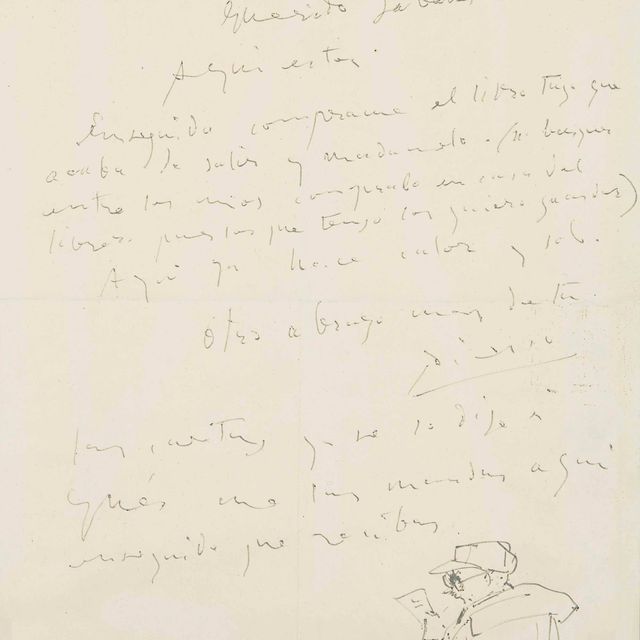 Querido Sabartes
Aqui estoy.
Enseguida comprame el libro tuyo que
acaba de salir y mandamelo. (no busques
entre los mios compralo en casa del
librero pues los que tengo los quiero guardar)
Aqui ya hace calor y sol.
Otro abrazo mas de tu
Picasso
las cartas ya se lo dije a
Inés me las mandas aqui
enseguida que recibas